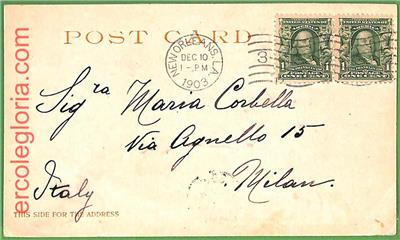 POST CARD
NEW ORLEANS, LA
DEC 10
1-PM
1903
3
1
1
ONE CENT
ONE CENT
Sig.ra Maria Corbella
Via Agnello 15
Milan.
Italy
THIS SIDE FOR THE ADDRESS
ercolegloria.com